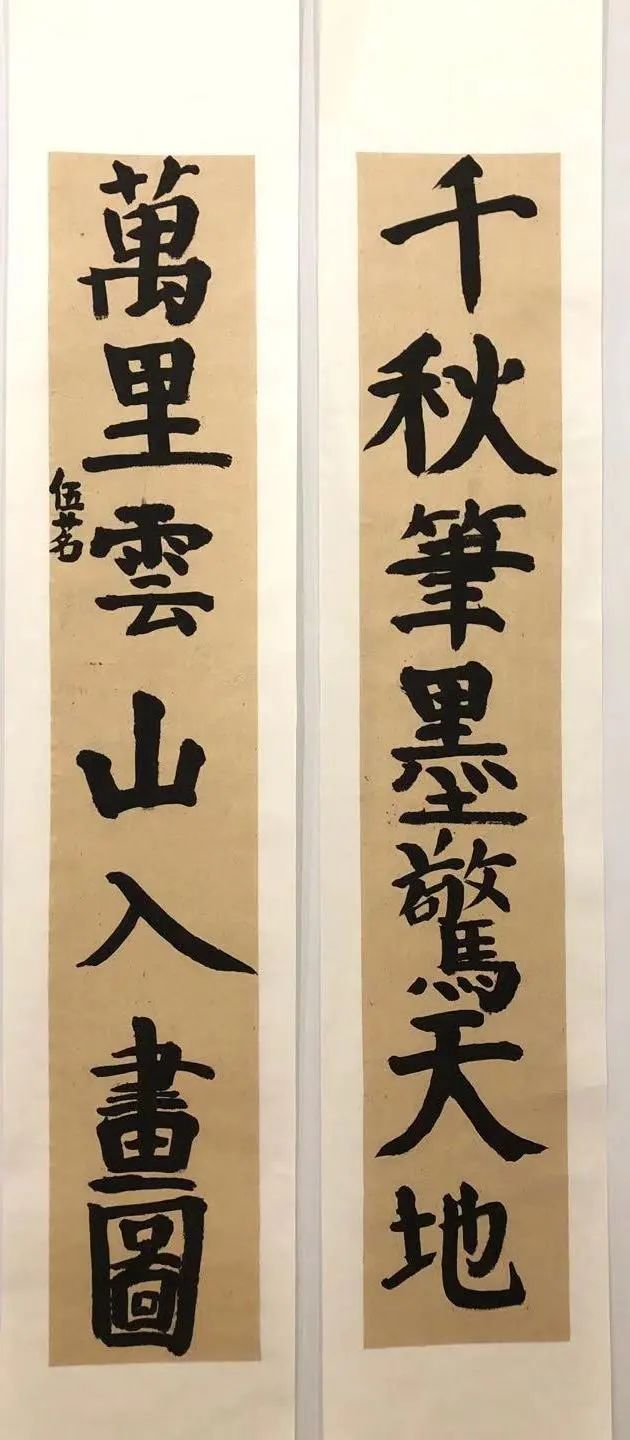 千秋筆墨驚天地
萬里雲山入畫圖
伍茗